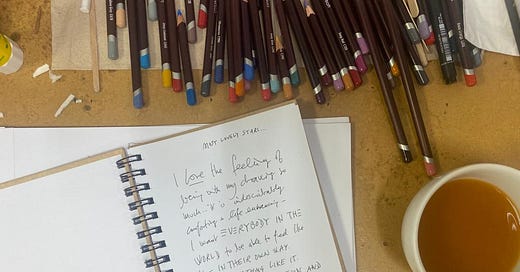 MY LOVELY STARS...
I love the feeling of
being with my drawing so
much. it is indescribably
comforting & life enhancing –
I want EVERYBODY IN THE
WORLD to be able to feel like
IN THEIR OWN WAY.
NOTHING LIKE IT.
AND